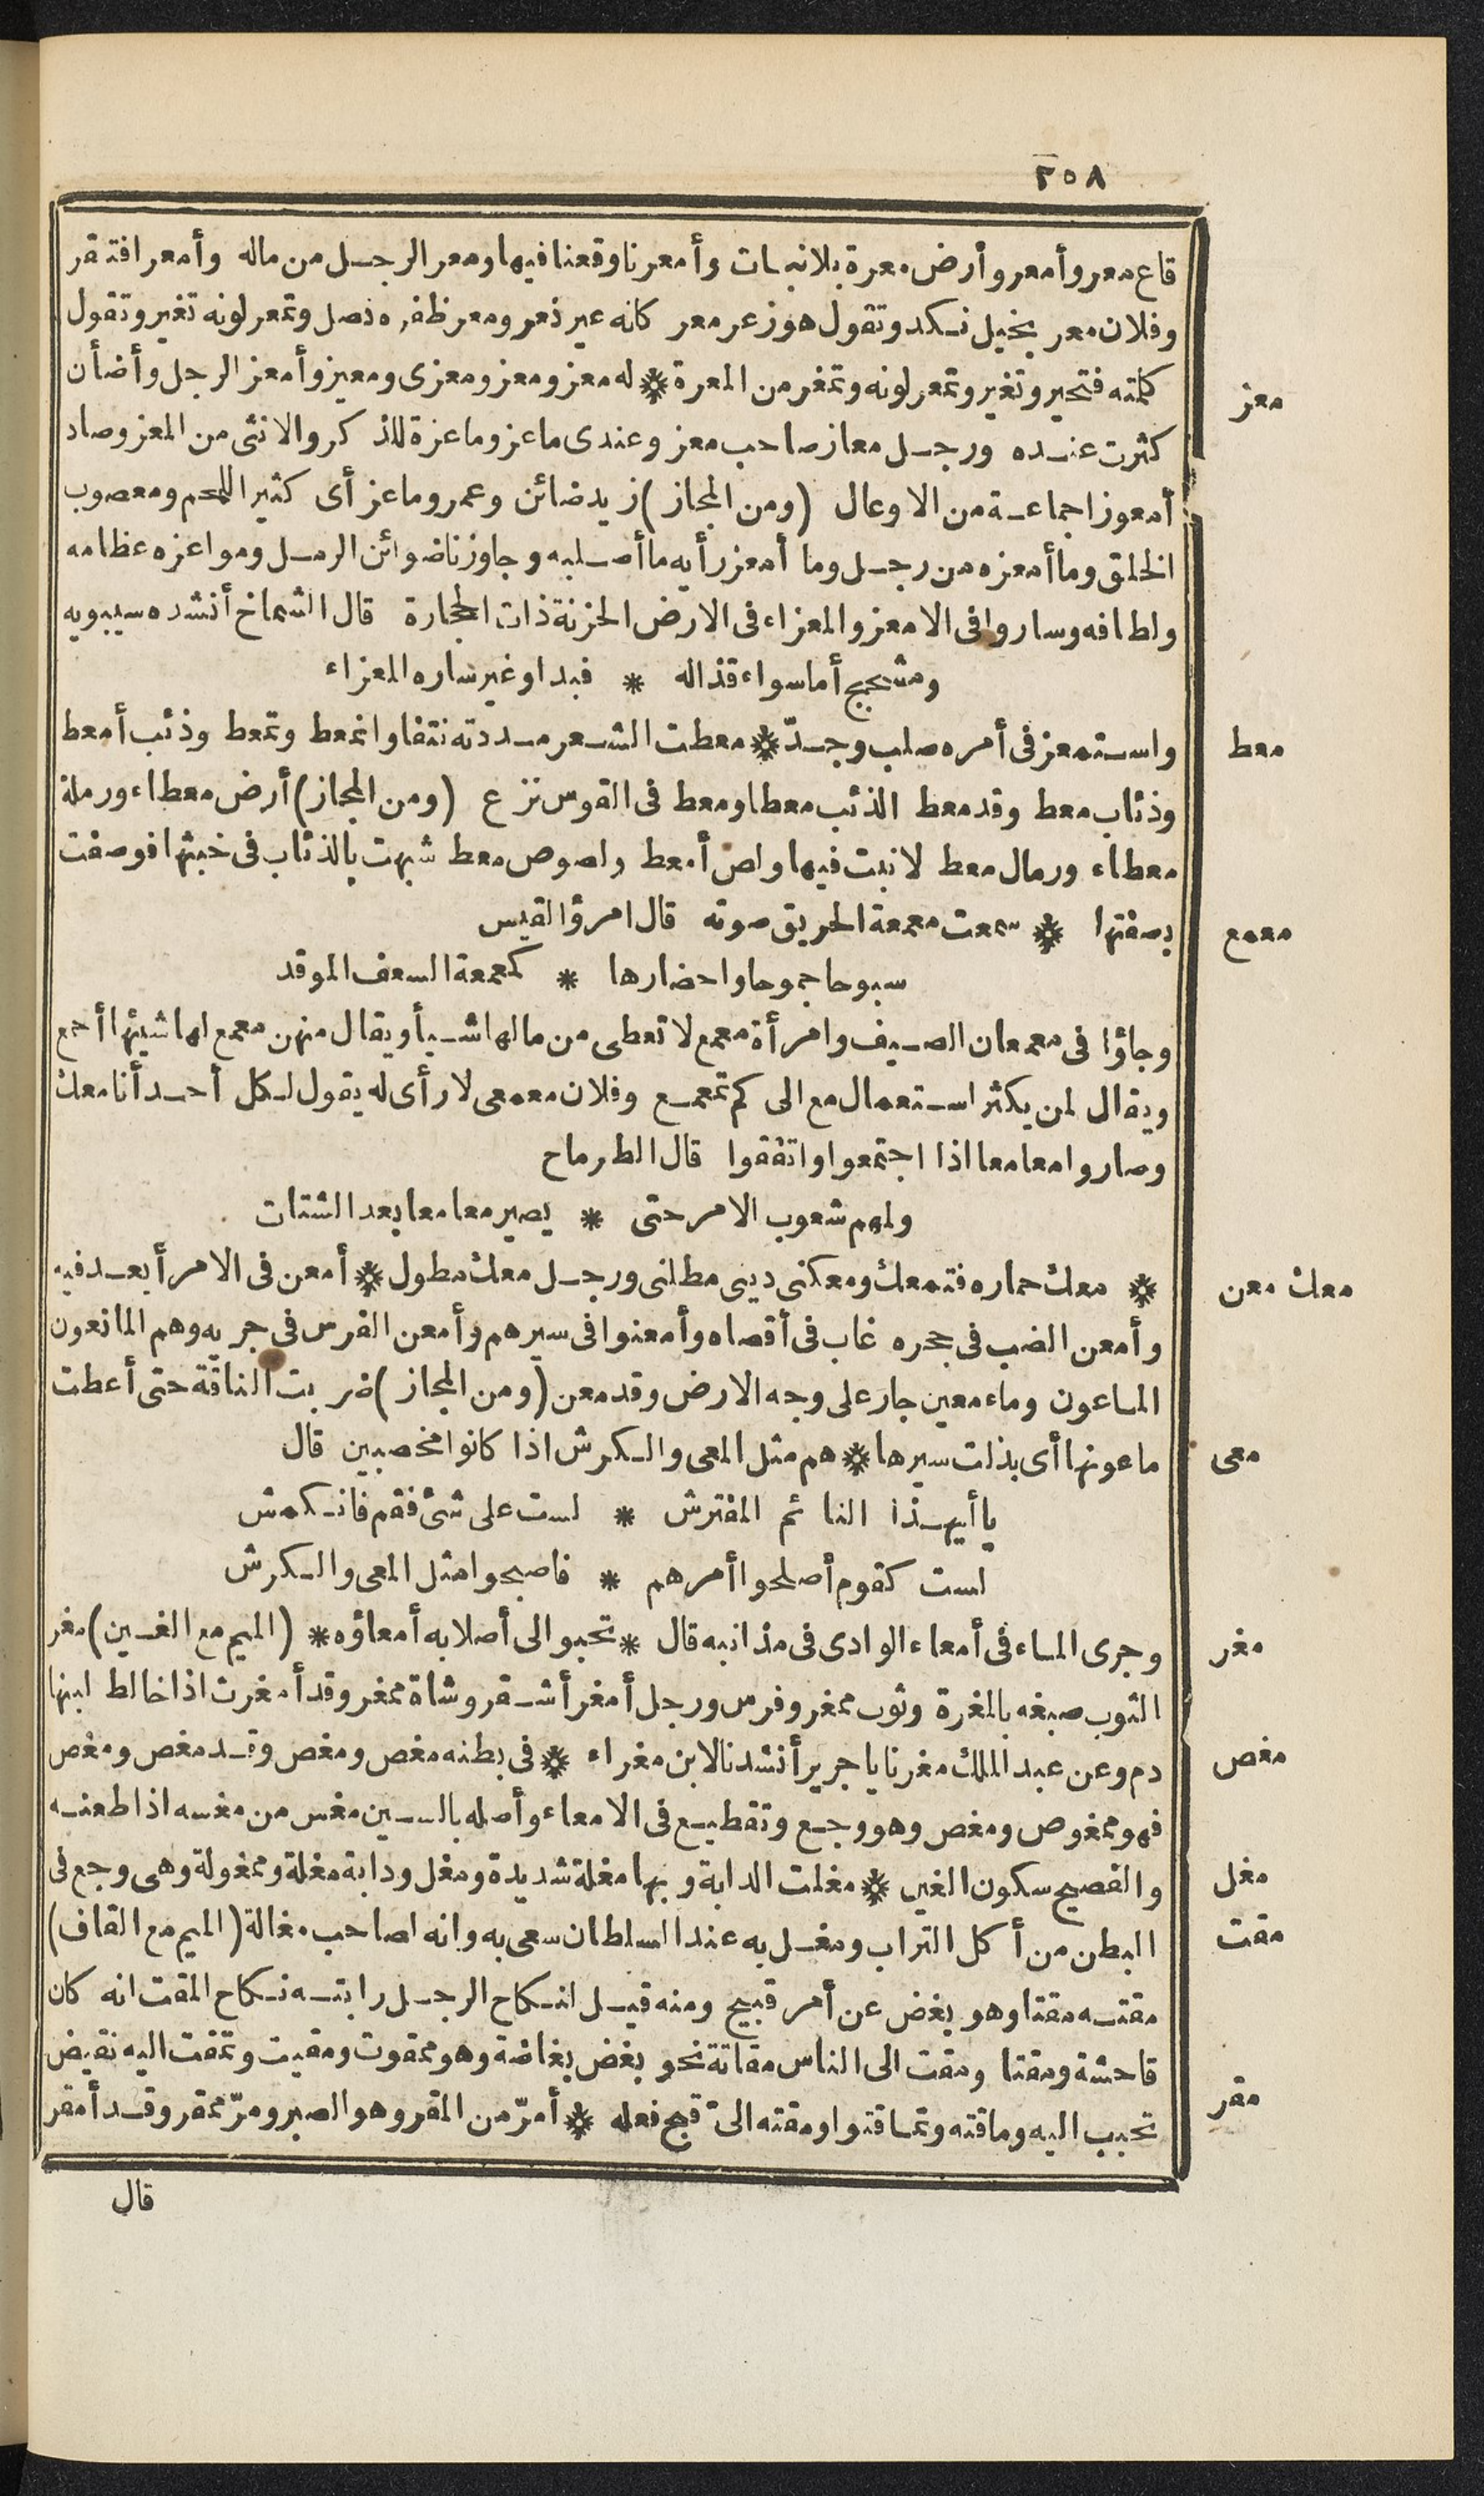 ٣٥٨
قاع معر وأمعر وأرض معرة بلا نبات وأمعرنا وقعنا فيها ومعر الرجل من ماله وأمعر افتقر
وفلان معر بخيل نكد وتقول هو زعر معر كانه عير ذعر ومعر ظفره نصل وتمعر لونه تغير وتقول
كلمته فتحير وتغير وتمعر لونه وتمغر من المعرة ۞ له معز ومعز ومعزى ومعيز وأمعز الرجل وأضأن
معز
كثرت عنده ورجل معاز صاحب معز وعندى ماعز وماعزة للذكر والانثى من المعز وصاد
أمعوزا جماعة من الاوعال (ومن المجاز) زيد ضائن وعمرو ماعز أى كثير اللحم ومعصوب
الخلق وما أمعزه من رجل وما أمعز رأيه ما أصلبه وجاوزنا ضوائن الرمل ومواعزه عظامه
ولطافه وساروا فى الامعز والمعزاء فى الارض الحزنة ذات الحجارة قال الشماخ أنشده سيبويه
ومشجج أما سواء قذاله * فبدا وغير ساره المعزاء
واستمعز فى أمره صلب وجدّ ۞ معطت الشعر مددته نتفا وانمعط وتمعط وذئب أمعط
معط
وذئاب معط وقد معط الذئب معطا ومعط فى القوس نزع (ومن المجاز) أرض معطاء ورملة
معطاء ورمال معط لا نبت فيها ولص أمعط ولصوص معط شبهت بالذئاب فى خبثها فوصفت
بصفتها ۞ سمعت معمعة الحريق صوته قال امرؤ القيس
معمع
سبوحا جموحا واحضارها * كمعمعة السعف الموقد
وجاؤا فى معمعان الصيف وامرأة معمع لا تعطى من مالها شيأ ويقال منهن معمع لها شيئها أجمع
ويقال لمن يكثر استعمال مع الى كم تمعمع وفلان معمعى لا رأى له يقول لكل أحد أنا معك
وصاروا معامعا اذا اجتمعوا واتفقوا قال الطرماح
ولهم شعوب الامر حتى * يصير معامعا بعد الشتات
۞ معك حماره فتمعك ومعكنى دينى مطلنى ورجل معك مطول ۞ أمعن فى الامر أبعد فيه
معك معن
وأمعن الضب فى جحره غاب فى أقصاه وأمعنوا فى سيرهم وأمعن الفرس فى جريه وهم المانعون
الماعون وماء معين جار على وجه الارض وقد معن (ومن المجاز) ضربت الناقة حتى أعطت
ماعونها أى بذلت سيرها ۞ هم مثل المعى والكرش اذا كانوا مخصبين قال
معى
يا أيهذا النائم المفترش * لست على شئ فقم فانكمش
لست كقوم أصلحوا أمرهم * فاصبحوا مثل المعى والكرش
وجرى الماء فى أمعاء الوادى فى مذانبه قال * تحبو الى أصلابه أمعاؤه * (الميم مع الغين) مغر
مغر
الثوب صبغه بالمغرة وثوب ممغر وفرس ورجل أمغر أشقر وشاة ممغر وقد أمغرت اذا خالط لبنها
دم وعن عبد الملك مغرنا يا جرير أنشدنا لابن مغراء ۞ فى بطنه مغص ومغص وقد مغص ومغص
مغص
فهو ممغوص ومغص وهو وجع وتقطيع فى الامعاء وأصله بالسين مغس من مغسه اذا طعنه
والفصيح سكون الغين ۞ مغلت الدابة وبها مغلة شديدة ومغل ودابة مغلة وممغولة وهى وجع فى
مغل
البطن من أكل التراب ومغل به عند السلطان سعى به وانه لصاحب مغالة (الميم مع القاف)
مقت
مقته مقتا وهو بغض عن أمر قبيح ومنه قيل لنكاح الرجل رابته نكاح المقت انه كان
فاحشة ومقتا ومقت الى الناس مقاتة نحو بغض بغاضة وهو ممقوت ومقيت وتمقت اليه نقيض
تحبب اليه وماقته وتماقتوا ومقته الىّ قبح فعله ۞ أمرّ من المقر وهو الصبر ومرّ ممقر وقد أمقر
مقر
قال